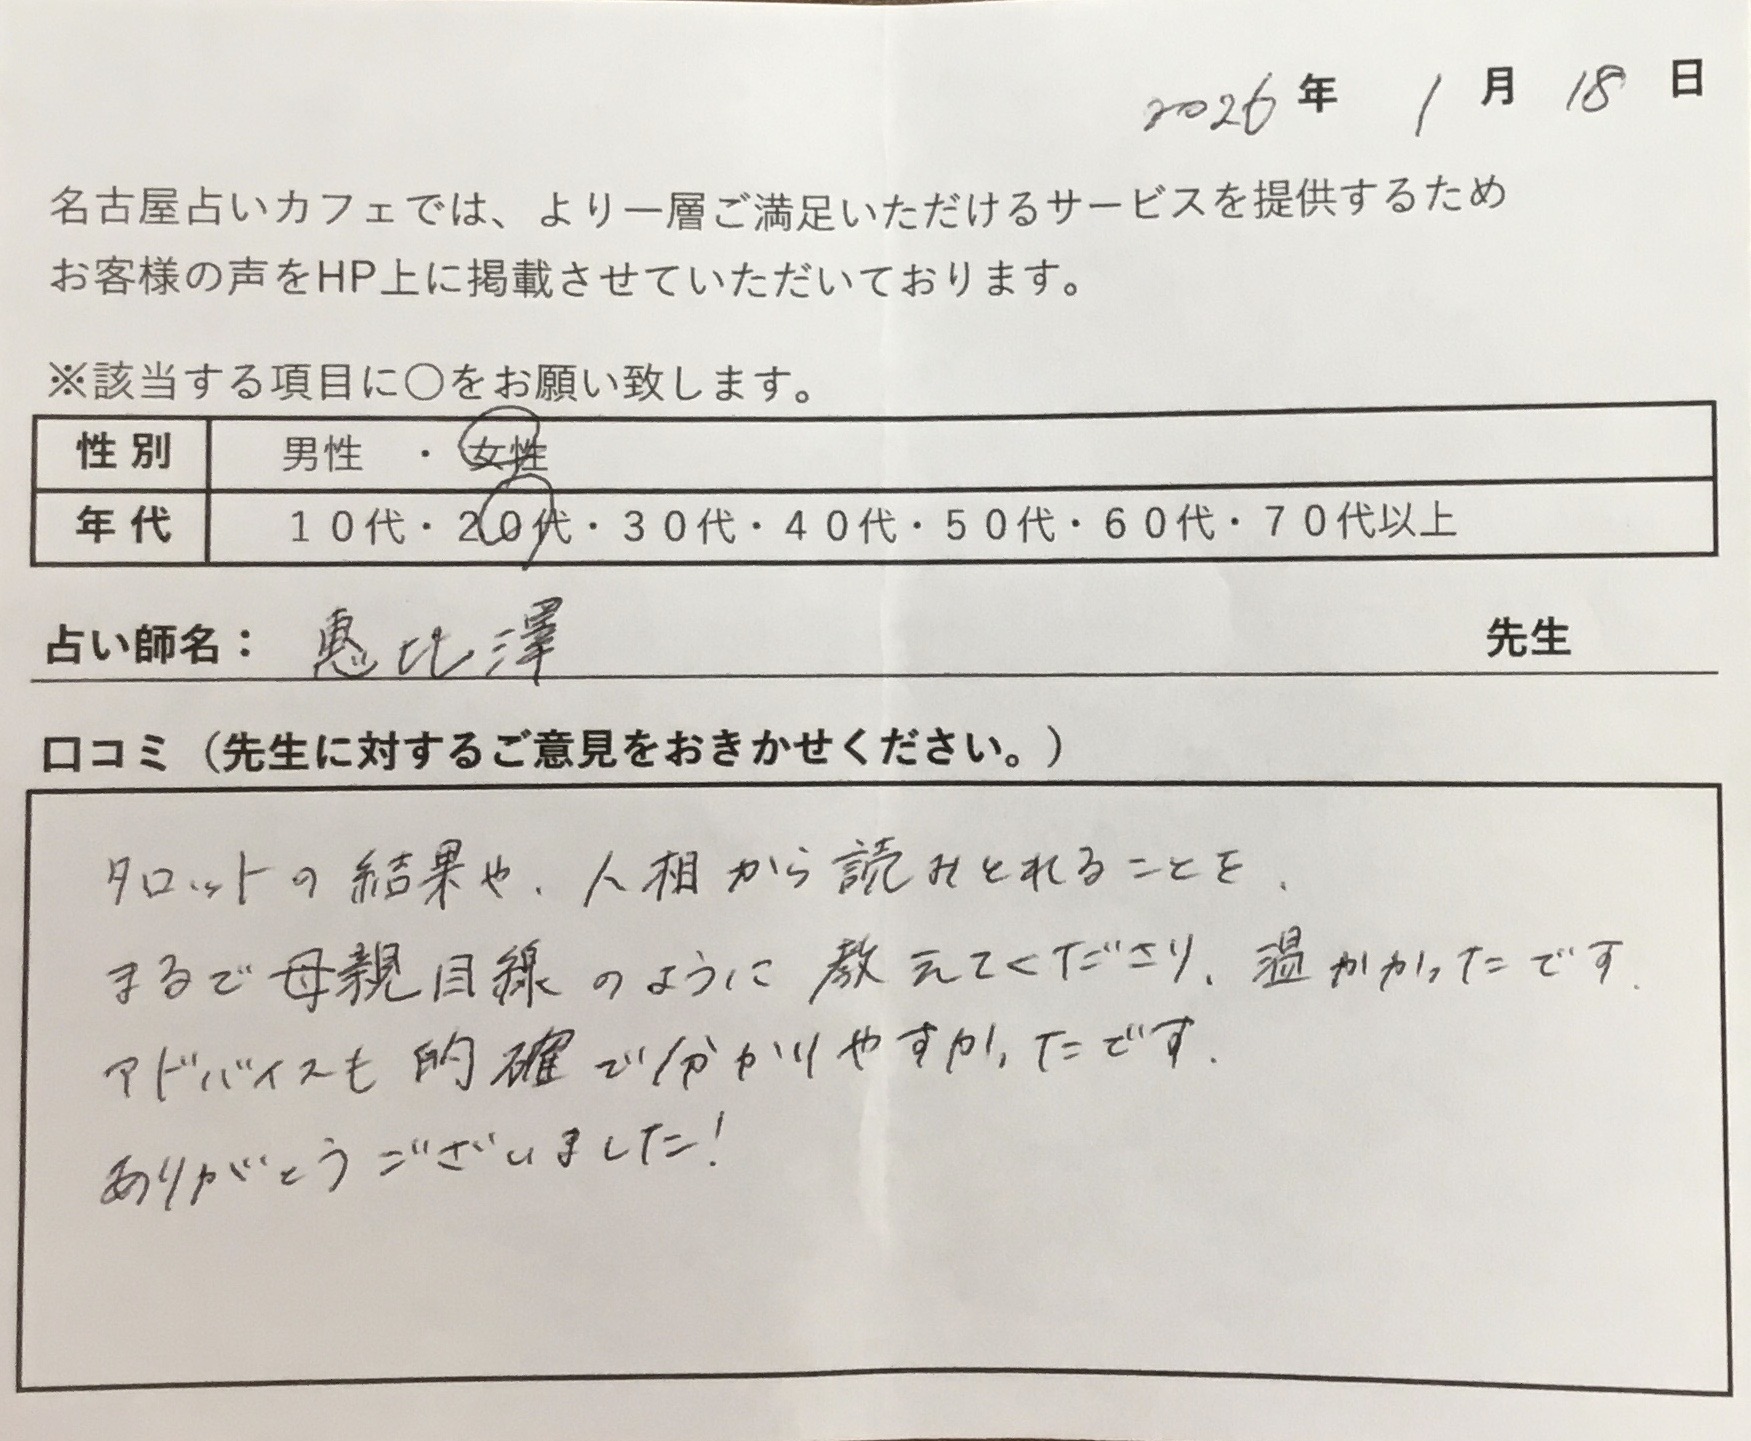 2026年 1月 18日
名古屋占いカフェでは、より一層ご満足いただけるサービスを提供するため
お客様の声をHP上に掲載させていただいております。
※該当する項目に〇をお願い致します。
性別 男性 ・ 女性
年代 10代・20代・30代・40代・50代・60代・70代以上
占い師名： 恵比澤 先生
口コミ（先生に対するご意見をおきかせください。）
タロットの結果や、人相から読みとれることを、
まるで母親目線のように教えてくださり、温かかったです。
アドバイスも的確で分かりやすかったです。
ありがとうございました！